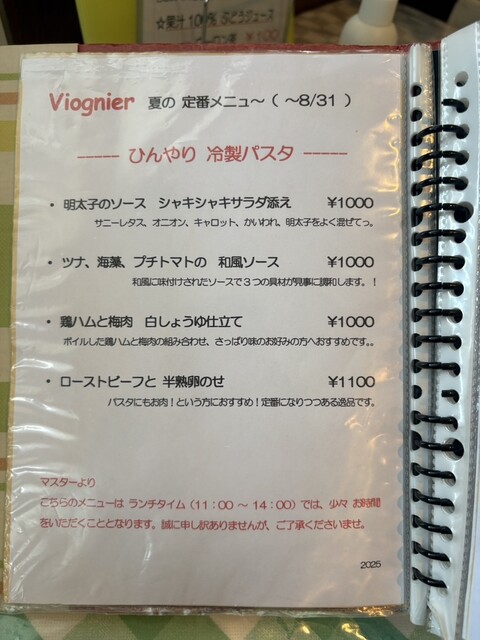 ☆果汁100% ぶどうジュース
¥100
Viognier 夏の 定番メニュ～（ ～8/31 ）
----- ひんやり 冷製パスタ -----
・ 明太子のソース シャキシャキサラダ添え ¥1000
サニーレタス、オニオン、キャロット、かいわれ、明太子をよく混ぜてっ。
・ ツナ、海藻、プチトマトの 和風ソース ¥1000
和風に味付けされたソースで３つの具材が見事に調和します。！
・ 鶏ハムと梅肉 白しょうゆ仕立て ¥1000
ボイルした鶏ハムと梅肉の組み合わせ、さっぱり味のお好みの方へおすすめです。。
・ ローストビーフと 半熟卵のせ ¥1100
パスタにもお肉！という方におすすめ！定番になりつつある逸品です。
マスターより
こちらのメニューは ランチタイム（11：00 ～ 14：00）では、少々 お時間
をいただくこととなります。誠に申し訳ありませんが、ご了承くださいませ。
2025